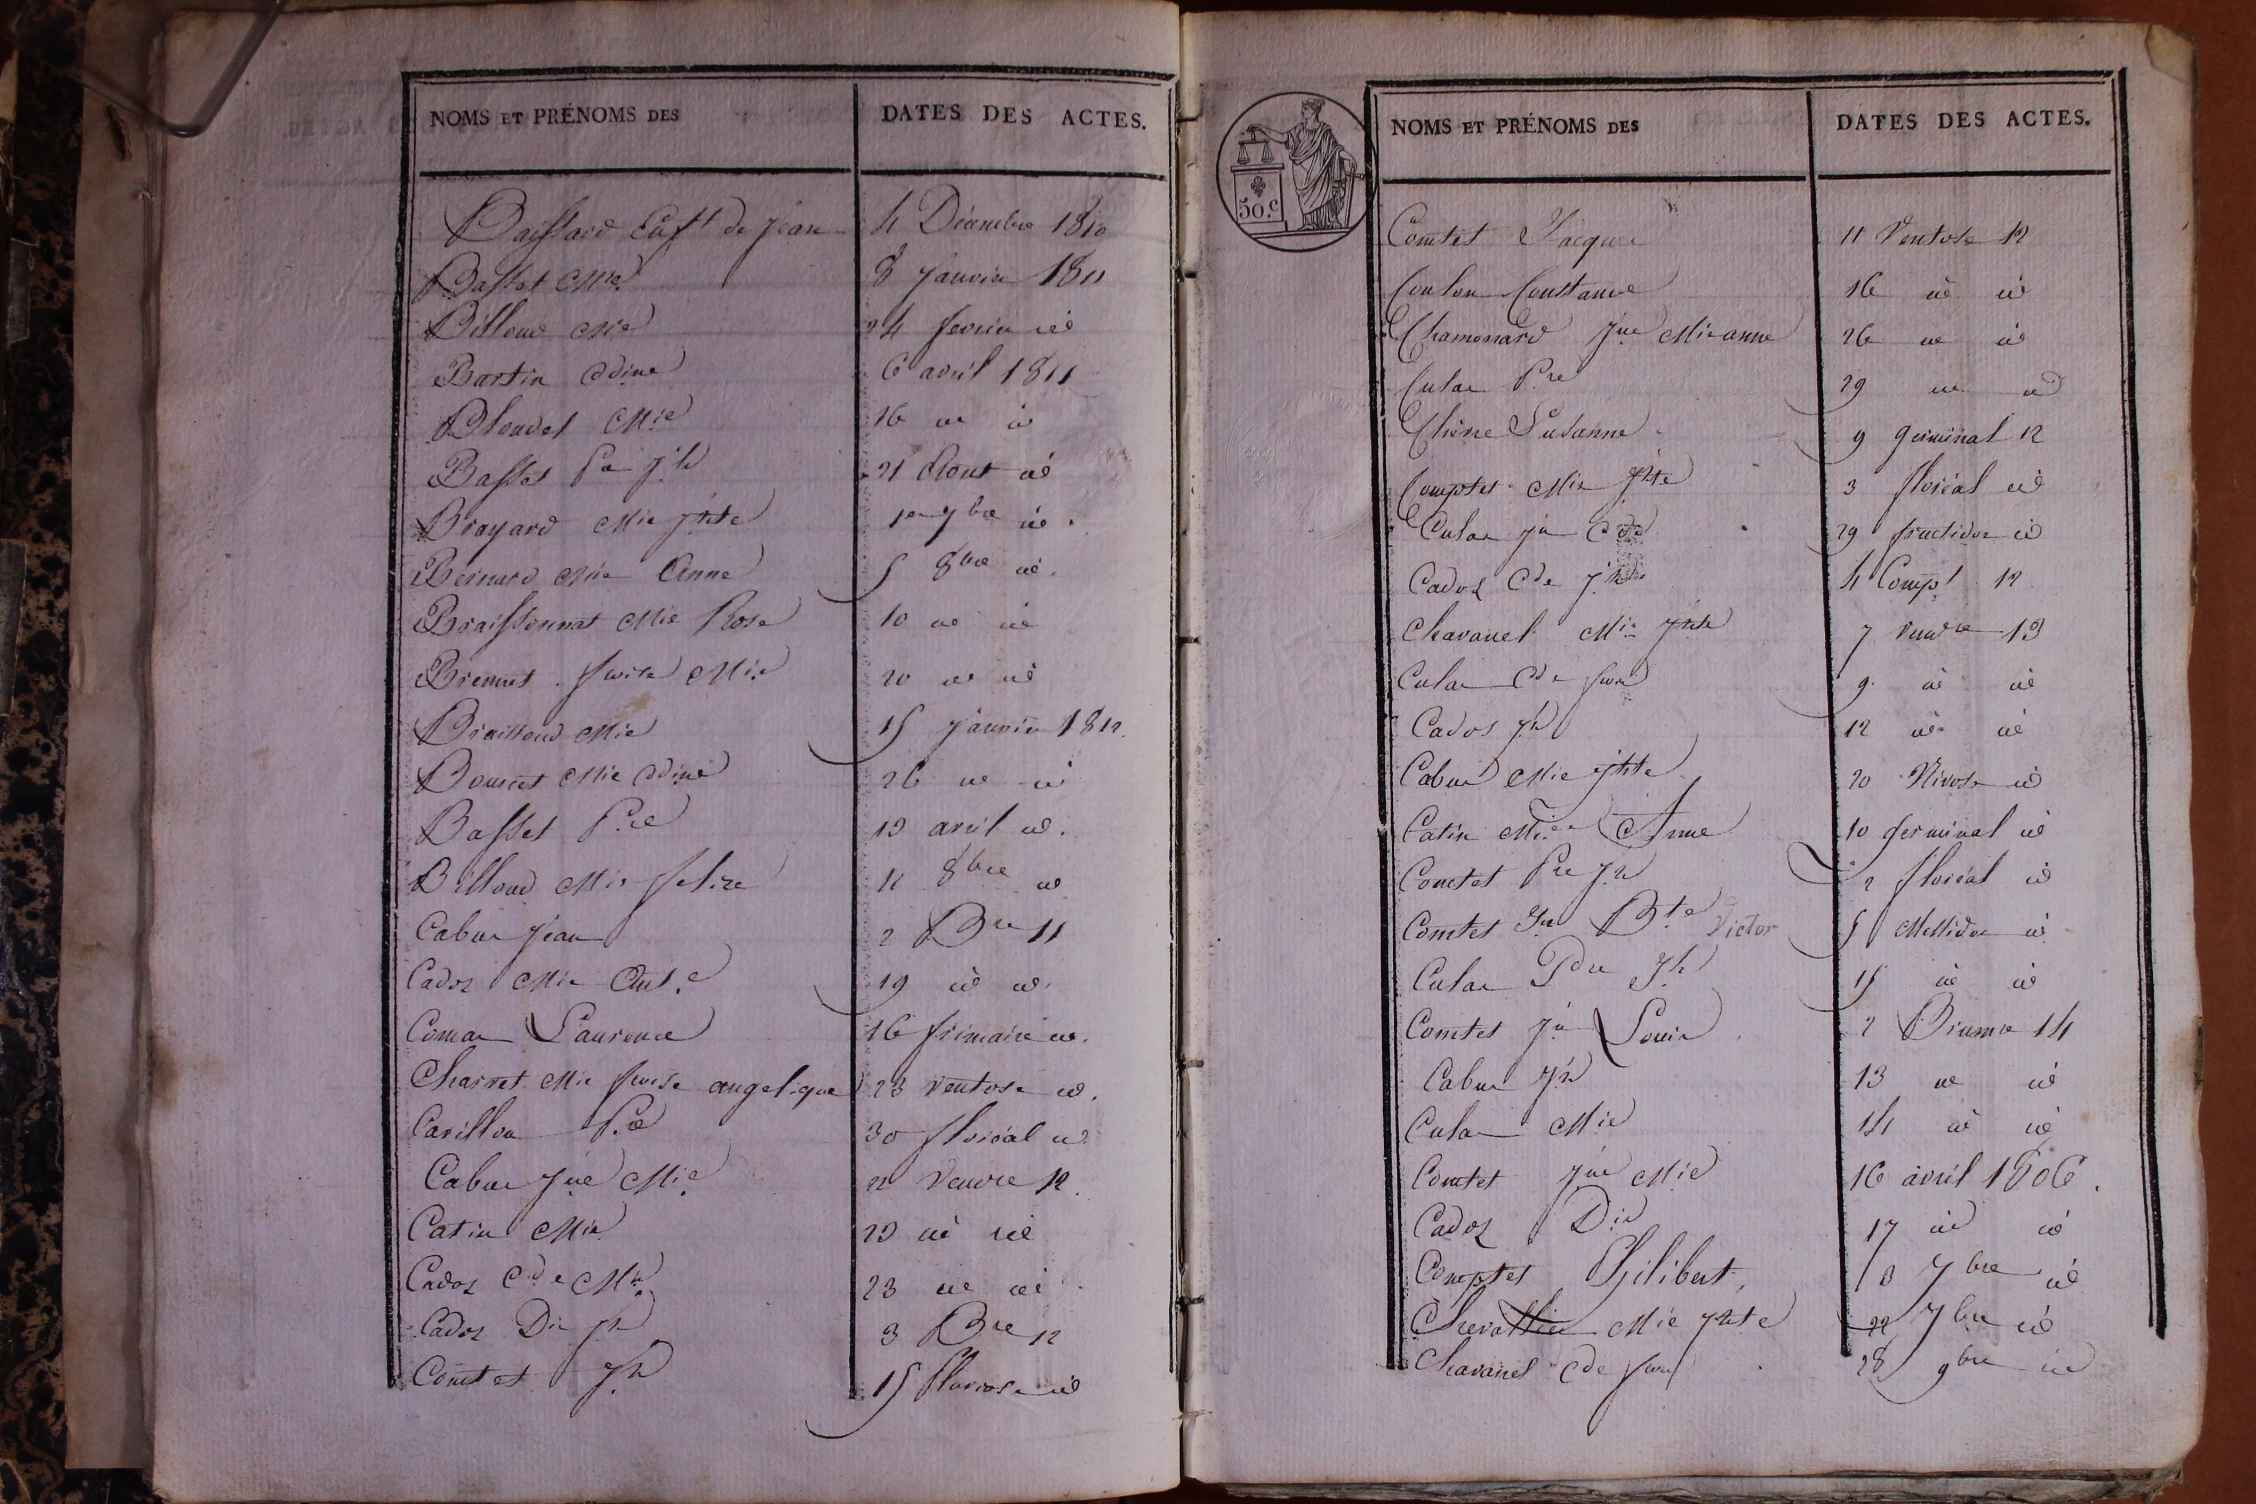 NOMS ET PRÉNOMS DES DATES DES ACTES.
Baissard Enft de Jean 4 Décembre 1810
Basset Mie 8 Janvier 1811
Billoud Mie 24 fevrier id
Bertin Cdine 6 avril 1811
Blondel Mie 16 id id
Basset Jh 21 Aout id
Brayard Mie Jhte 1er 7bre id.
Bernard Mie Anne 5 8bre id.
Braissonnat Mie Rose 10 id id
Brennet fcoise Mie 20 id id
Brailloud Mie 15 Janvier 1812.
Bourcet Mie Cdine 26 id id
Basset Pre 19 avril id.
Billoud Mie felize 12 8bre id
Cabue Jean 2 Bre 11
Cadoz Mie Ante 19 id id.
Comae Laurence 16 frimaire id.
Charvet Mie fcoise angelique 23 ventose id.
Carillon Pre 30 floréal id
Cabue Jne Mie 22 Vendre 12.
Catin Mie 23 id id
Cadoz Cde Mie 23 id id
Cadoz Dis Jh 3 Bre 12
Comtet Jh 15 Pluviose id
50.c
NOMS ET PRÉNOMS DES DATES DES ACTES.
Comtet Jacques 11 Ventose 12
Coulon Constance 16 id id
Chamonard Jne Mie anne 26 id id
Culae Pre 29 id id
Chêne Susanne 9 Germinal 12
Comptet Mie Jhte 3 floréal id
Culae Jn Cde 29 fructidor id
Cadoz Cde Jh 4 Compt 12
Chavanel Mie Jhte 7 Vendre 13
Culae Cde fcoise 9 id id
Cadoz Jh 12 id id
Cabue Mie Jhte 20 Nivose id
Catin Mie Anne 10 Germinal id
Comtet Pre Jh 2 floréal id
Comtet Jn Bte Victor 5 Messidor id
Culae Jh 15 id id
Comtet Jn Louis 2 Brumre 14
Cabue Jh 13 id id
Culae Mie 14 id id
Comtet Jne Mie 16 avril 1806.
Cadoz Dis 17 id id
Comptet Philibert, 8 7bre id
Chevallier Mie Jhte 22 7bre id
Chavanel Cde fcois 28 9bre id